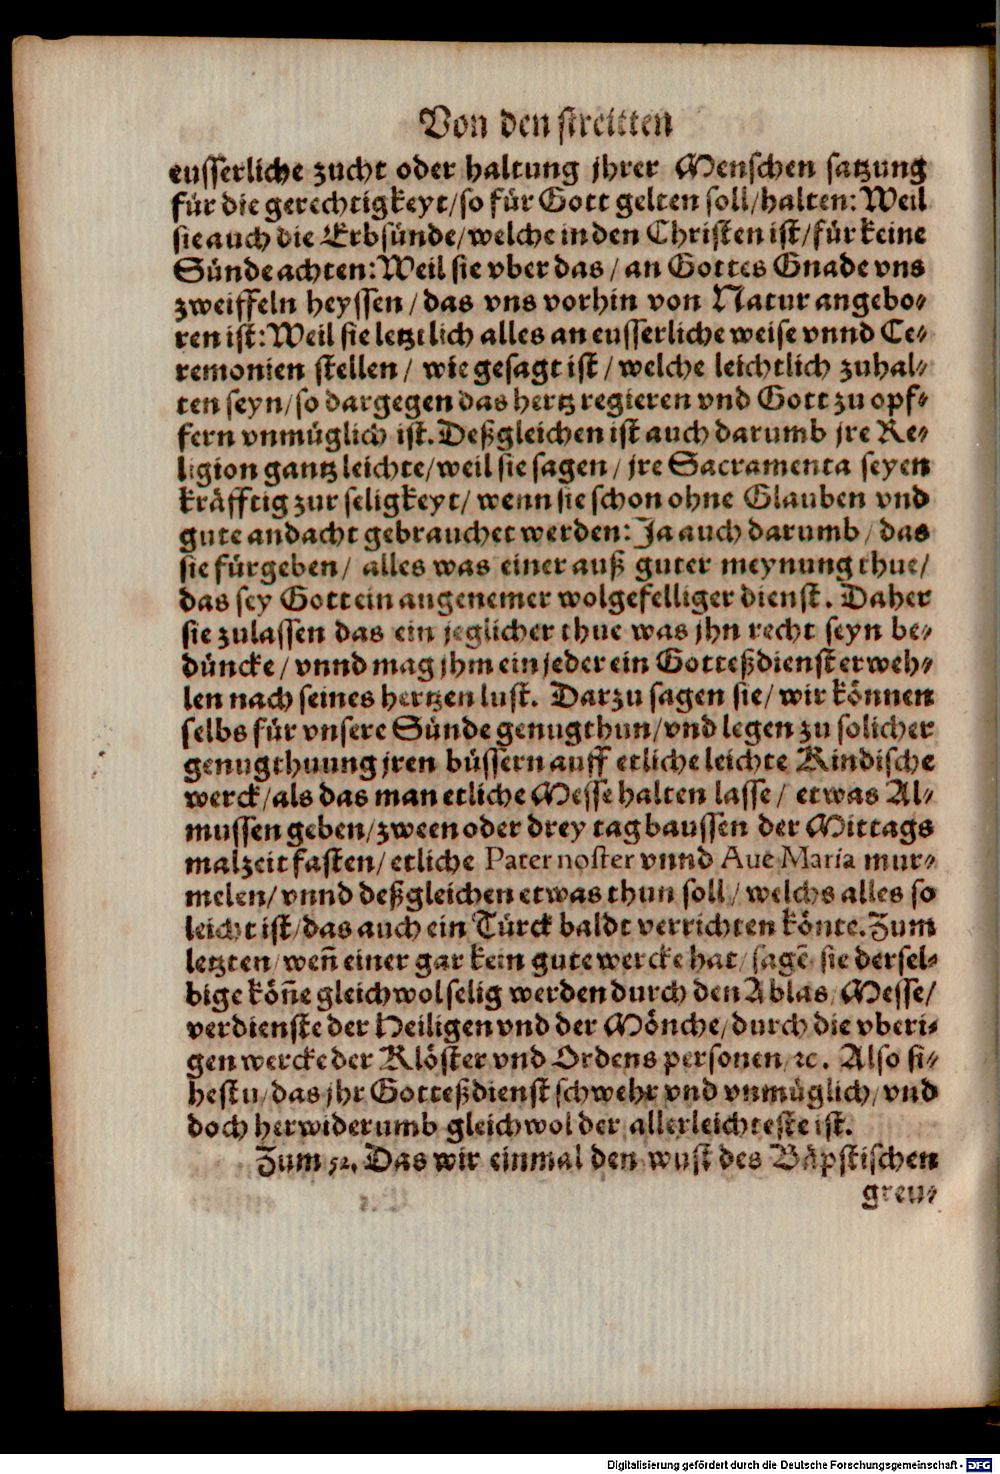 Von den streitten
eusserliche zucht oder haltung jhrer Menschen satzung
für die gerechtigkeyt/so für Gott gelten soll/halten: Weil
sie auch die Erbsünde/welche in den Christen ist/für keine
Sünde achten: Weil sie vber das/an Gottes Gnade vns
zweiffeln heyssen/das vns vorhin von Natur angebo-
ren ist: Weil sie letztlich alles an eusserliche weise vnnd Ce-
remonien stellen/ wie gesagt ist/welche leichtlich zuhal-
ten seyn/so dargegen das hertz regieren vnd Gott zu opf-
fern vnmüglich ist. Deßgleichen ist auch darumb jre Re-
ligion gantz leichte/weil sie sagen/ jre Sacramenta seyen
kräfftig zur seligkeyt/ wenn sie schon ohne Glauben vnd
gute andacht gebrauchet werden: Ja auch darumb/das
sie fürgeben/ alles was einer auß guter meynung thue/
das sey Gott ein angenemer wolgefelliger dienst. Daher
sie zulassen das ein jeglicher thue was jhn recht seyn be-
düncke/vnnd mag jhm ein jeder ein Gotteßdienst erweh-
len nach seines hertzen lust. Darzu sagen sie/wir können
selbs für vnsere Sünde genugthun/vnd legen zu solicher
genugthuung jren büssern auff etliche leichte Kindische
werck/als das man etliche Messe halten lasse/ etwas Al-
mussen geben/zween oder drey tag baussen der Mittags
malzeit fasten/etliche Pater noster vnnd Aue Maria mur-
melen/vnnd deßgleichen etwas thun soll/welchs alles so
leicht ist/das auch ein Türck baldt verrichten könte. Zum
letzten/weñ einer gar kein gute wercke hat/sagē sie dersel-
bige köñe gleichwol selig werden durch den Ablas/Messe/
verdienste der Heiligen vnd der Mönche/durch die vberi-
gen wercke der Klöster vnd Ordens personen/ꝛc. Also si-
hestu/das jhr Gotteßdienst schwehr vnd vnmüglich/vnd
doch herwiderumb gleichwol der allerleichteste ist.
Zum 52. Das wir einmal den wust des Bäpstischen
greu-
Digitalisierung gefördert durch die Deutsche Forschungsgemeinschaft - DFG